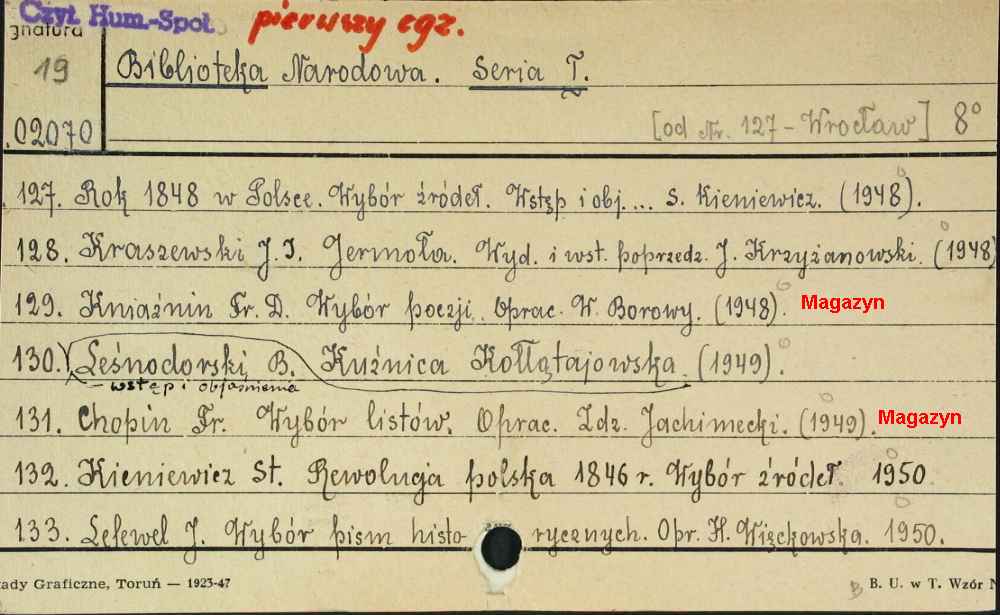 Czyt. Hum.-Społ. pierwszy egz.
gnatura
19 Biblioteka Narodowa. Seria I.
02070 [od Nr. 127 - Wrocław] 8°
127. Rok 1848 w Polsce. Wybór źródeł. Wstęp i obj.... S. Kieniewicz. (1948).
128. Kraszewski J. I. Jermoła. Wyd. i wst. poprzedz. J. Krzyżanowski. (1948)
129. Kniaźnin Fr. D. Wybór poezji. Oprac. W. Borowy. (1948). Magazyn
130. Leśnodorski B. Kuźnica Kołłątajowska. (1949).
- wstęp i objaśnienia
131. Chopin Fr. Wybór listów. Oprac. Zdz. Jachimecki. (1949). Magazyn
132. Kieniewicz St. Rewolucja polska 1846 r. Wybór źródeł. 1950
133. Lelewel J. Wybór pism historycznych. Opr. H. Więckowska. 1950.
ady Graficzne, Toruń — 1923-47 B. U. w T. Wzór N